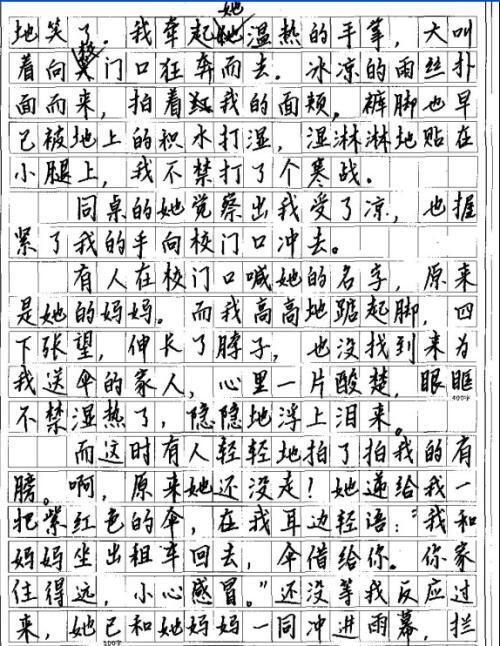 地笑了。我牵起她温热的手掌，大叫
着向门口狂奔而去。冰凉的雨丝扑
面而来，拍着我的面颊，裤脚也早
已被地上的积水打湿，湿淋淋地贴在
小腿上，我不禁打了个寒战。
同桌的她觉察出我受了凉，也握
紧了我的手向校门口冲去。
有人在校门口喊她的名字，原来
是她的妈妈。而我高高地踮起脚，四
下张望，伸长了脖子，也没找到来为
我送伞的家人，心里一片酸楚，眼眶
400字
不禁湿热了，隐隐地浮上泪来。
而这时有人轻轻地拍了拍我的有
膀。啊，原来她还没走！她递给我一
把紫红色的伞，在我耳边轻语：“我和
妈妈坐出租车回去，伞借给你。你家
住得远，小心感冒。”还没等我反应过
来，她已和她妈妈一同冲进雨幕，拦
500字